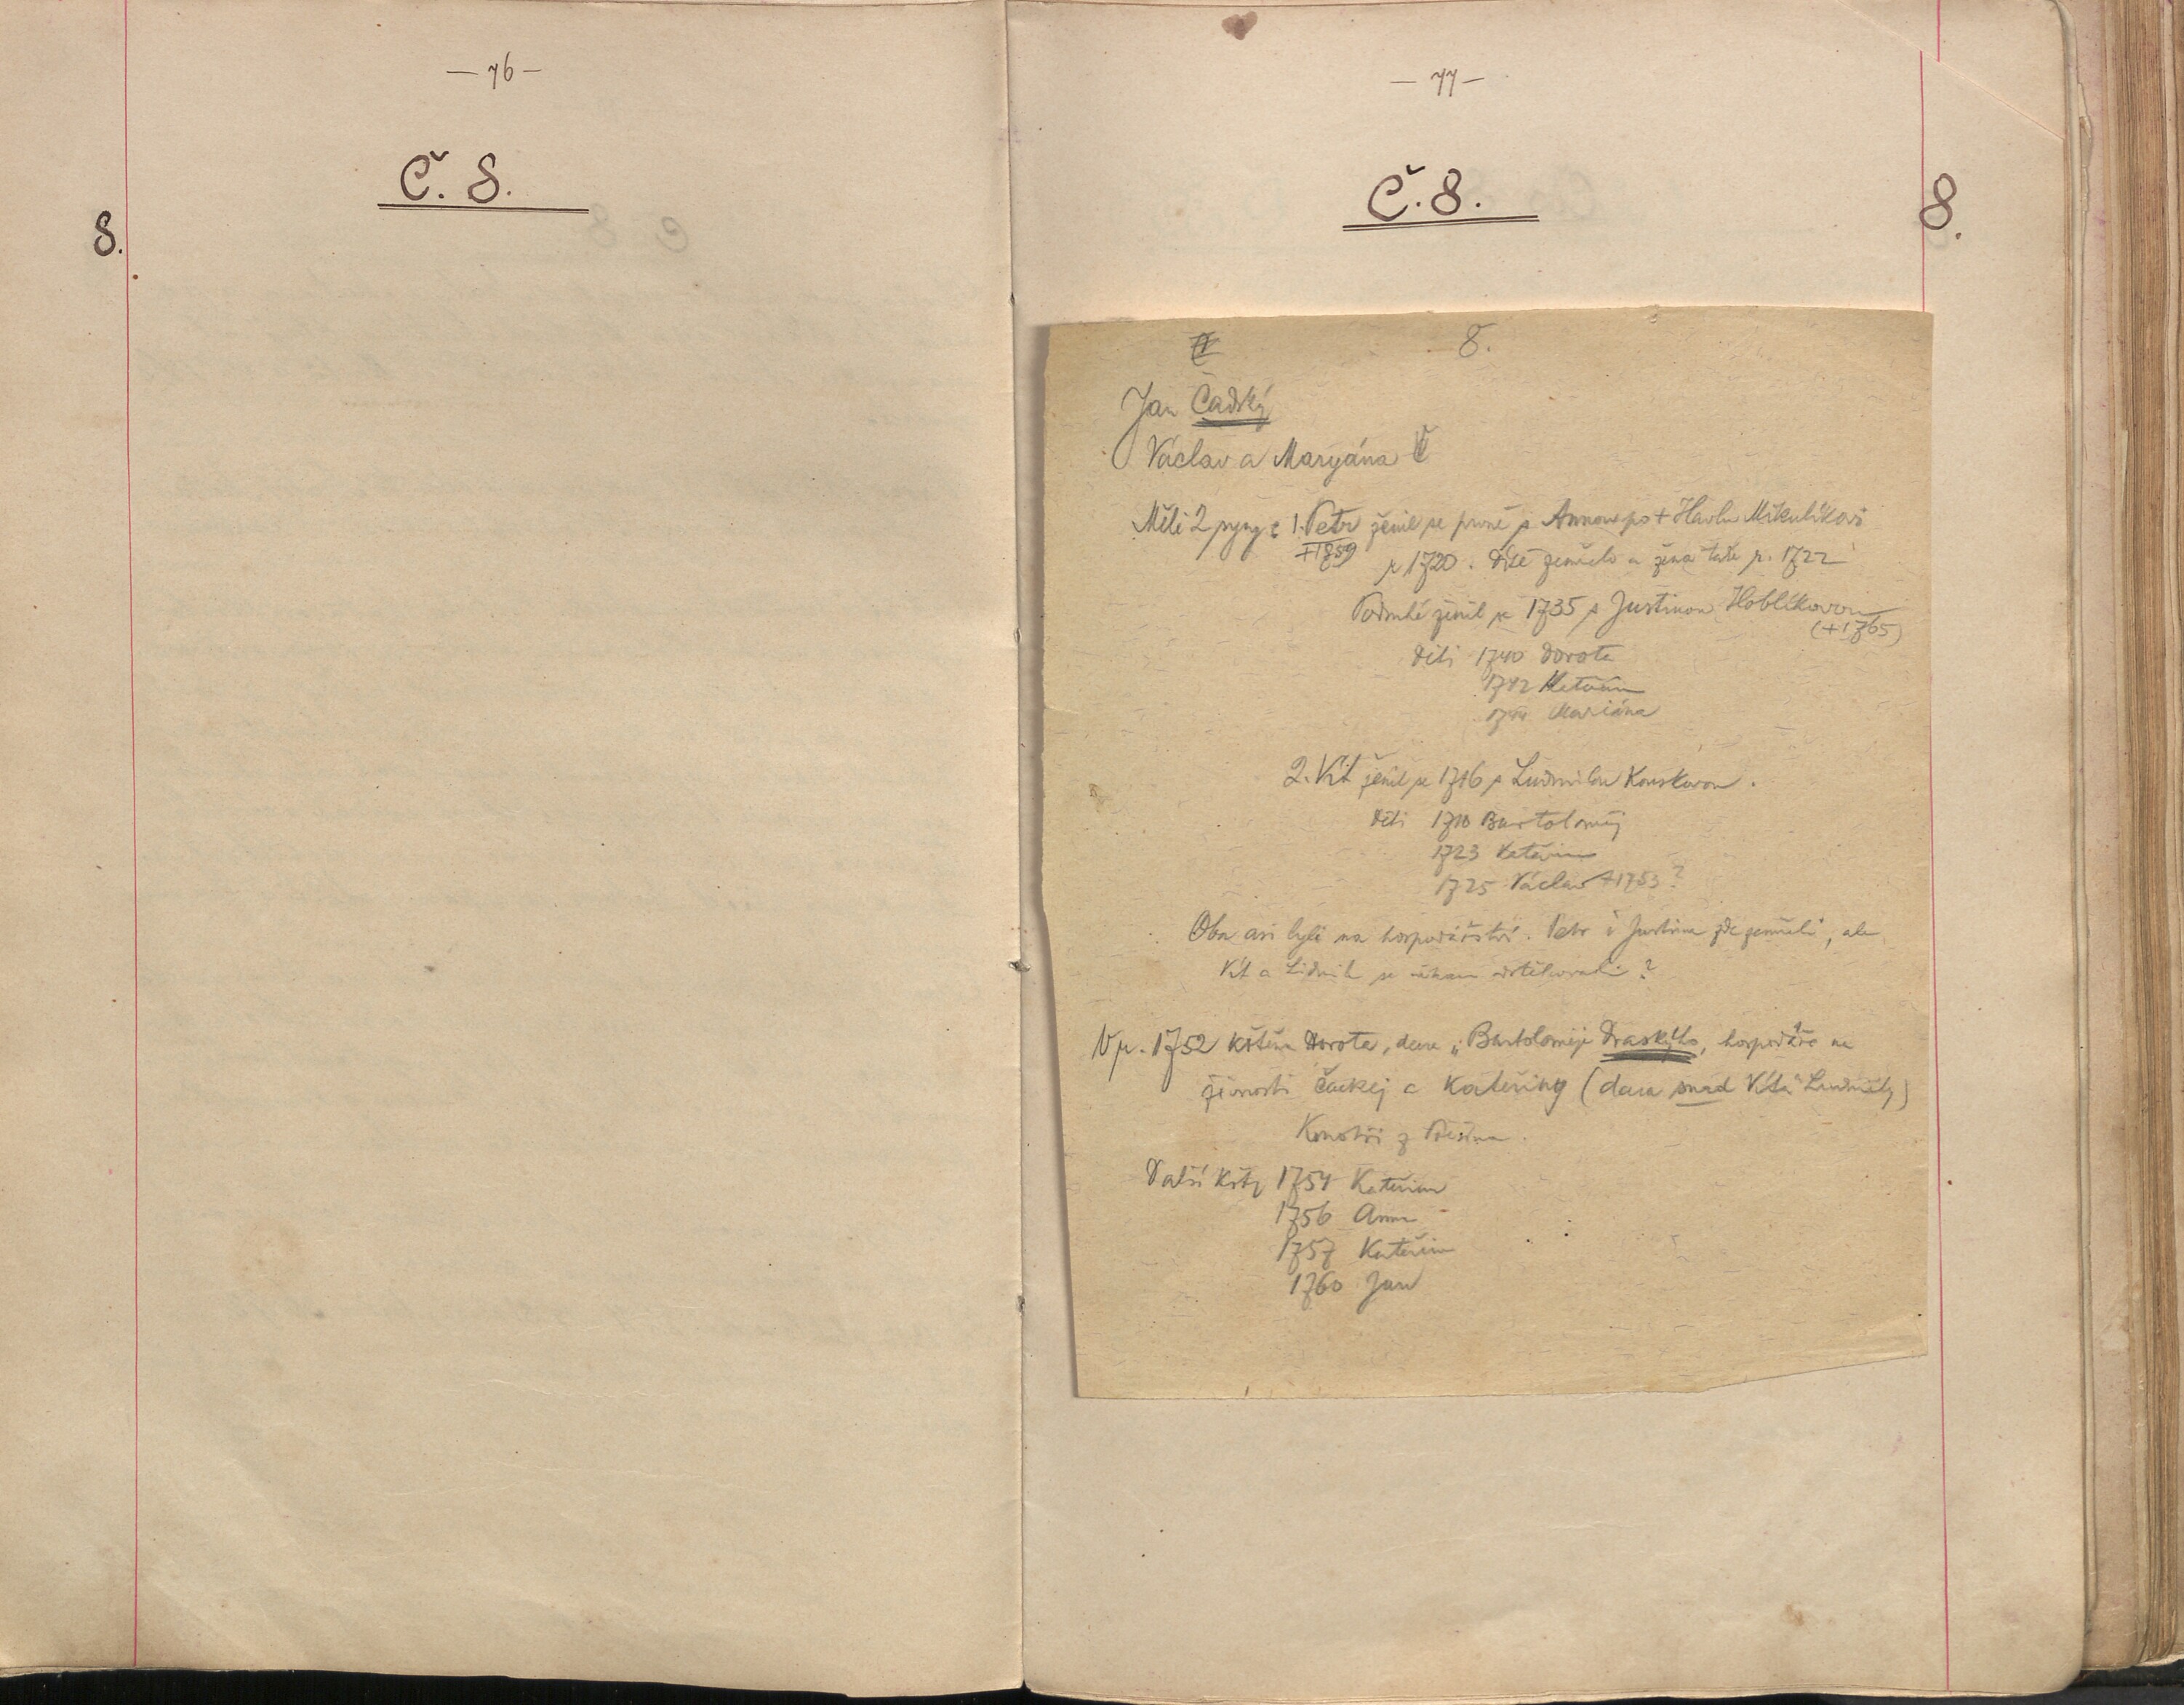 — 76 —
Č. 8.
8.
— 77 —
Č. 8.
8.
8.
Jan Čadský
Václav a Maryána Č
Měli 2 syny: 1. Petr ženil se prvně s Annou po + Havlu Mikulíkovi
+1759 r 1720. Dítě zemřelo a žena také r. 1722
Podruhé ženil se 1735 s Justinou Hoblíkovou
(+1765)
děti 1740 Dorota
1742 Kateřina
1744 Mariána
2. Vít ženil se 1716 s Ludmilou Kouskovou.
děti Bartoloměj
1723 Kateřina
1725 Václav +1753?
Oba asi byli na hospodářství. Petr i Justina zde zemřeli, ale
Vít a Lidmila se někam odstěhovali?
V r. 1752 křtěna Dorota, dcera „Bartoloměje Draského, hospodáře na
živnosti Čackej a Kateřiny (dcera snad Víta Ludmily)
Kmotři z
Další křty 1754 Kateřina
1756 Anna
1757 Kateřina
1760 Jan